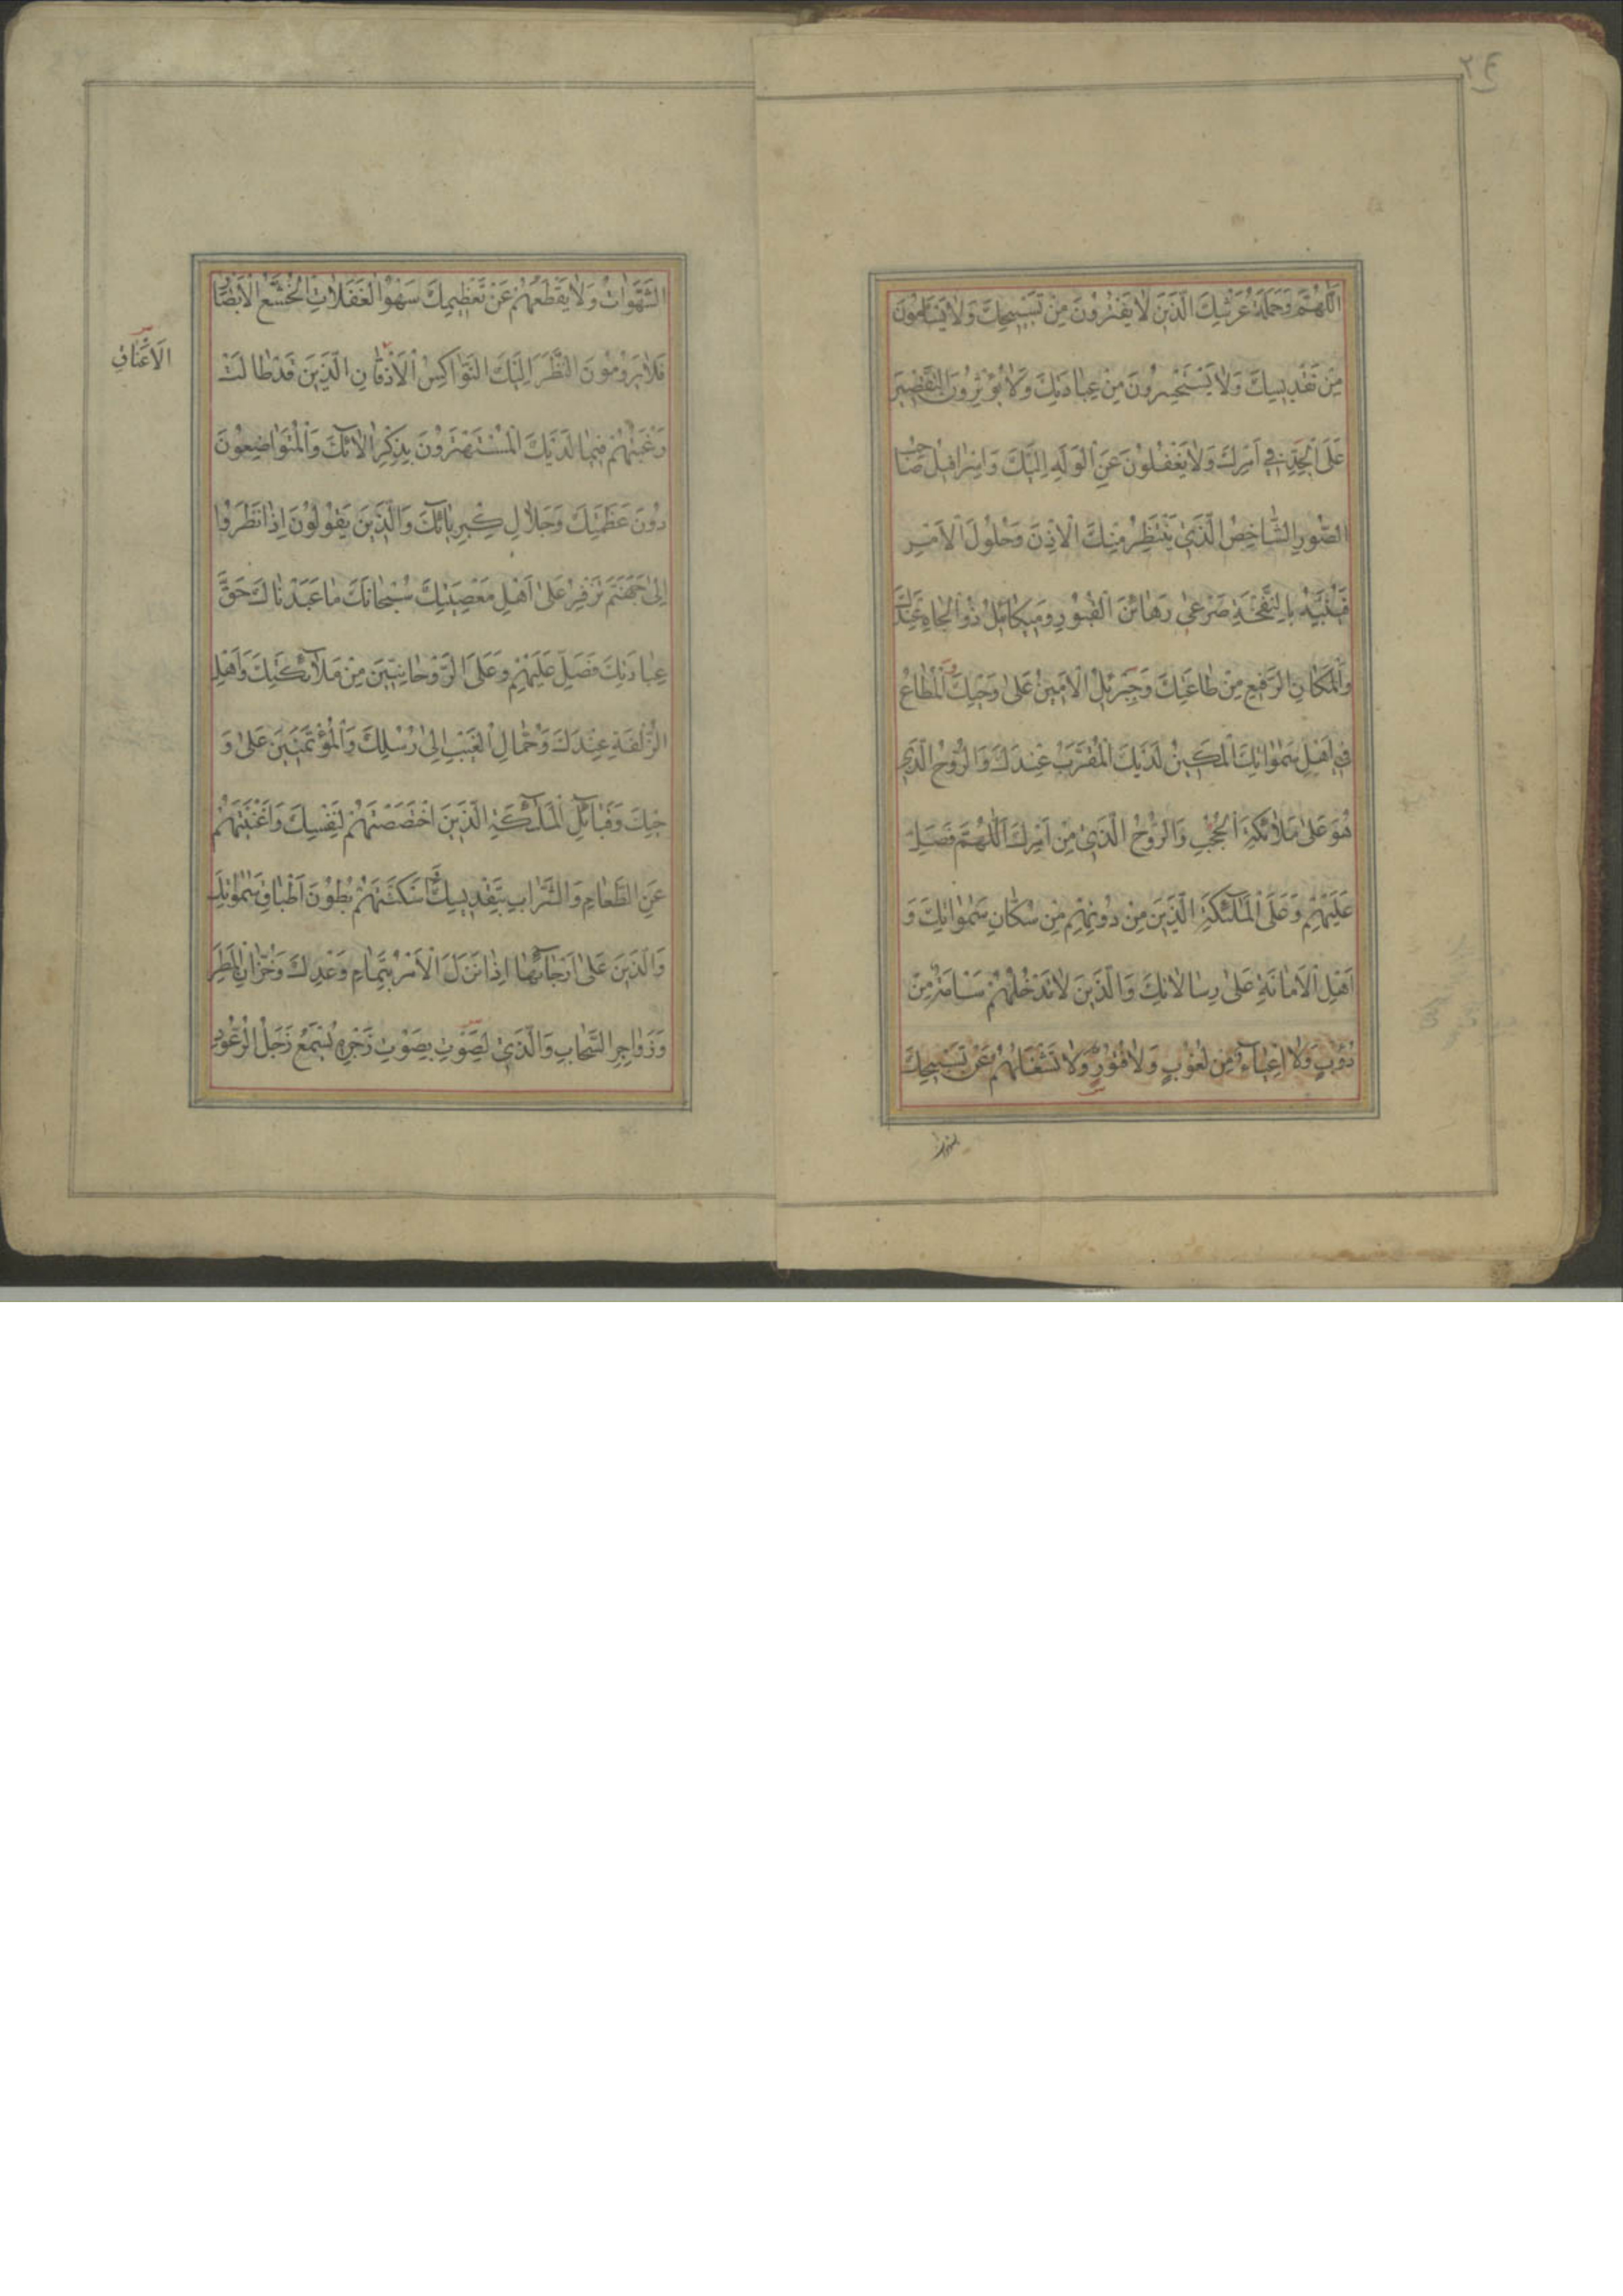 ٢٤
اَللّٰهُمَّ وَحَمَلَةُ عَرْشِكَ الَّذِينَ لَا يَفْتُرُونَ مِنْ تَسْبِيحِكَ وَلَا يَسْأَمُونَ
مِنْ تَقْدِيسِكَ وَلَا يَسْتَحْسِرُونَ مِنْ عِبَادَتِكَ وَلَا يُؤْثِرُونَ التَّقْصِيرَ
عَلَى الْجِدِّ فِي اَمْرِكَ وَلَا يَغْفُلُونَ عَنِ الْوَلَهِ اِلَيْكَ وَاِسْرَافِيلُ صَاحِبُ
الصُّورِ الشَّاخِصُ الَّذِي يَنْتَظِرُ مِنْكَ الْاِذْنَ وَحُلُولَ الْاَمْرِ
فَيُنَبِّهُ بِالنَّفْخَةِ صَرْعَى رَهَائِنَ الْقُبُورِ وَمِيكَائِلُ ذُو الْجَاهِ عِنْدَكَ
وَالْمَكَانِ الرَّفِيعِ مِنْ طَاعَتِكَ وَجِبْرِيلُ الْاَمِينُ عَلٰى وَحْيِكَ الْمُطَاعُ
فِي اَهْلِ سَمٰوَاتِكَ الْمَكِينُ لَدَيْكَ الْمُقَرَّبُ عِنْدَكَ وَالرُّوحُ الَّذِي
هُوَ عَلٰى مَلَائِكَةِ الْحُجُبِ وَالرُّوحُ الَّذِي مِنْ اَمْرِكَ اَللّٰهُمَّ فَصَلِّ
عَلَيْهِمْ وَعَلَى الْمَلٰئِكَةِ الَّذِينَ مِنْ دُونِهِمْ مِنْ سُكَّانِ سَمٰوَاتِكَ وَ
اَهْلِ الْاَمَانَةِ عَلٰى رِسَالَاتِكَ وَالَّذِينَ لَا تَدْخُلُهُمْ سَأْمَةٌ مِنْ
دُؤُبٍ وَلَا اِعْيَاءٌ مِنْ لُغُوبٍ وَلَا فُتُورٌ وَلَا تَشْغَلُهُمْ عَنْ تَسْبِيحِكَ
الشَّهَوَاتُ وَلَا يَقْطَعُهُمْ عَنْ تَعْظِيمِكَ سَهْوُ الْغَفَلَاتِ الْخُشَّعُ الْاَبْصَارُ
فَلَا يَرُومُونَ النَّظَرَ اِلَيْكَ النَّوَاكِسُ الْاَذْقَانِ الَّذِينَ قَدْ طَالَتْ
الْاَعْنَاقِ
رَغْبَتُهُمْ فِيمَا لَدَيْكَ الْمُسْتَهْتَرُونَ بِذِكْرِ اٰلَائِكَ وَالْمُتَوَاضِعُونَ
دُونَ عَظَمَتِكَ وَجَلَالِ كِبْرِيَائِكَ وَالَّذِينَ يَقُولُونَ اِذَا نَظَرُوا
اِلٰى جَهَنَّمَ تَزْفِرُ عَلٰى اَهْلِ مَعْصِيَتِكَ سُبْحَانَكَ مَا عَبَدْنَاكَ حَقَّ
عِبَادَتِكَ فَصَلِّ عَلَيْهِمْ وَعَلَى الرَّوْحَانِيِّينَ مِنْ مَلَائِكَتِكَ وَاَهْلِ
الزُّلْفَةِ عِنْدَكَ وَحُمَّالِ الْغَيْبِ اِلٰى رُسُلِكَ وَالْمُؤْتَمَنِينَ عَلٰى وَ
حْيِكَ وَقَبَائِلِ الْمَلٰئِكَةِ الَّذِينَ اخْتَصَصْتَهُمْ لِنَفْسِكَ وَاَغْنَيْتَهُمْ
عَنِ الطَّعَامِ وَالشَّرَابِ بِتَقْدِيسِكَ وَاَسْكَنْتَهُمْ بُطُونَ اَطْبَاقِ سَمٰوَاتِكَ
وَالَّذِينَ عَلٰى اَرْجَائِهَا اِذَا نَزَلَ الْاَمْرُ بِتَمَامِ وَعْدِكَ وَخُزَّانِ الْمَطَرِ
وَزَوَاجِرِ السَّحَابِ وَالَّذِي بِصَوْتِ زَجْرِهِ يُسْمَعُ زَجَلُ الرُّعُودِ